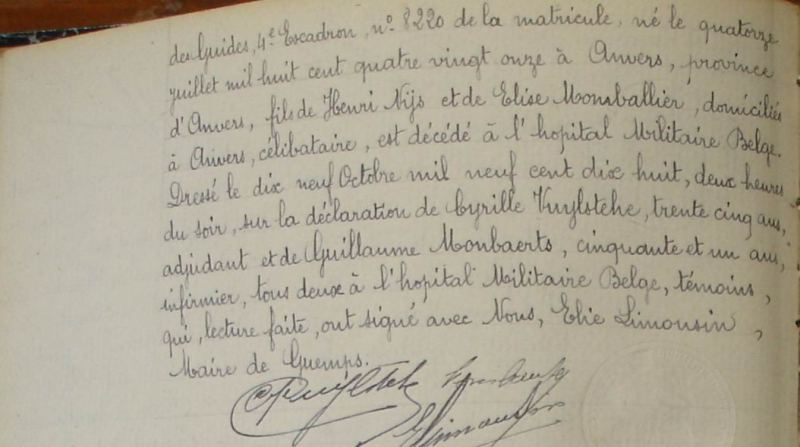 des Guides, 4e Escadron, no 8220 de la matricule, né le quatorze
juillet mil huit cent quatre vingt onze à Anvers, province
d'Anvers, fils de Henri Nijs et de Elise Momballier, domiciliés
à Anvers, célibataire, est décédé à l'hopital Militaire Belge.
Dressé le dix neuf Octobre mil neuf cent dix huit, deux heures
du soir, sur la déclaration de Cyrille Vuylsteke, trente cinq ans,
adjudant et de Guillaume Monbaerts, cinquante et un ans,
infirmier, tous deux à l'hopital Militaire Belge, témoins,
qui, lecture faite, ont signé avec Nous, Elie Limousin,
Maire de Guemps.